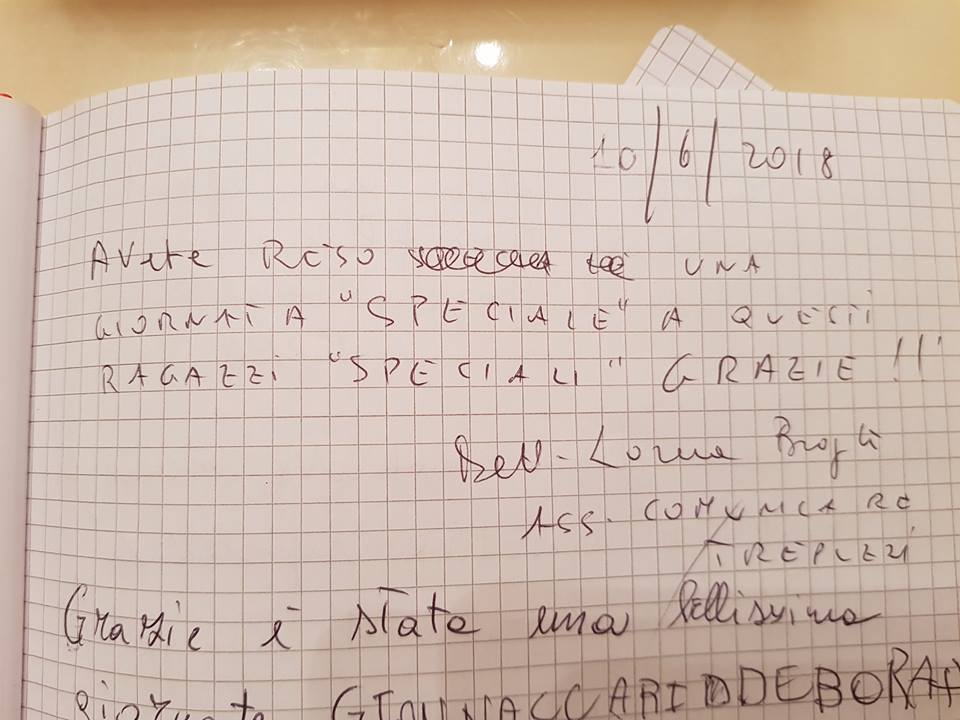 10/6/2018
AVETE RESO UNA
GIORNATA "SPECIALE" A QUESTI
RAGAZZI "SPECIALI" GRAZIE!!!
Lorena
ASS. COMUNICARE
Grazie è stata una bellissima
giornata DEBORAH